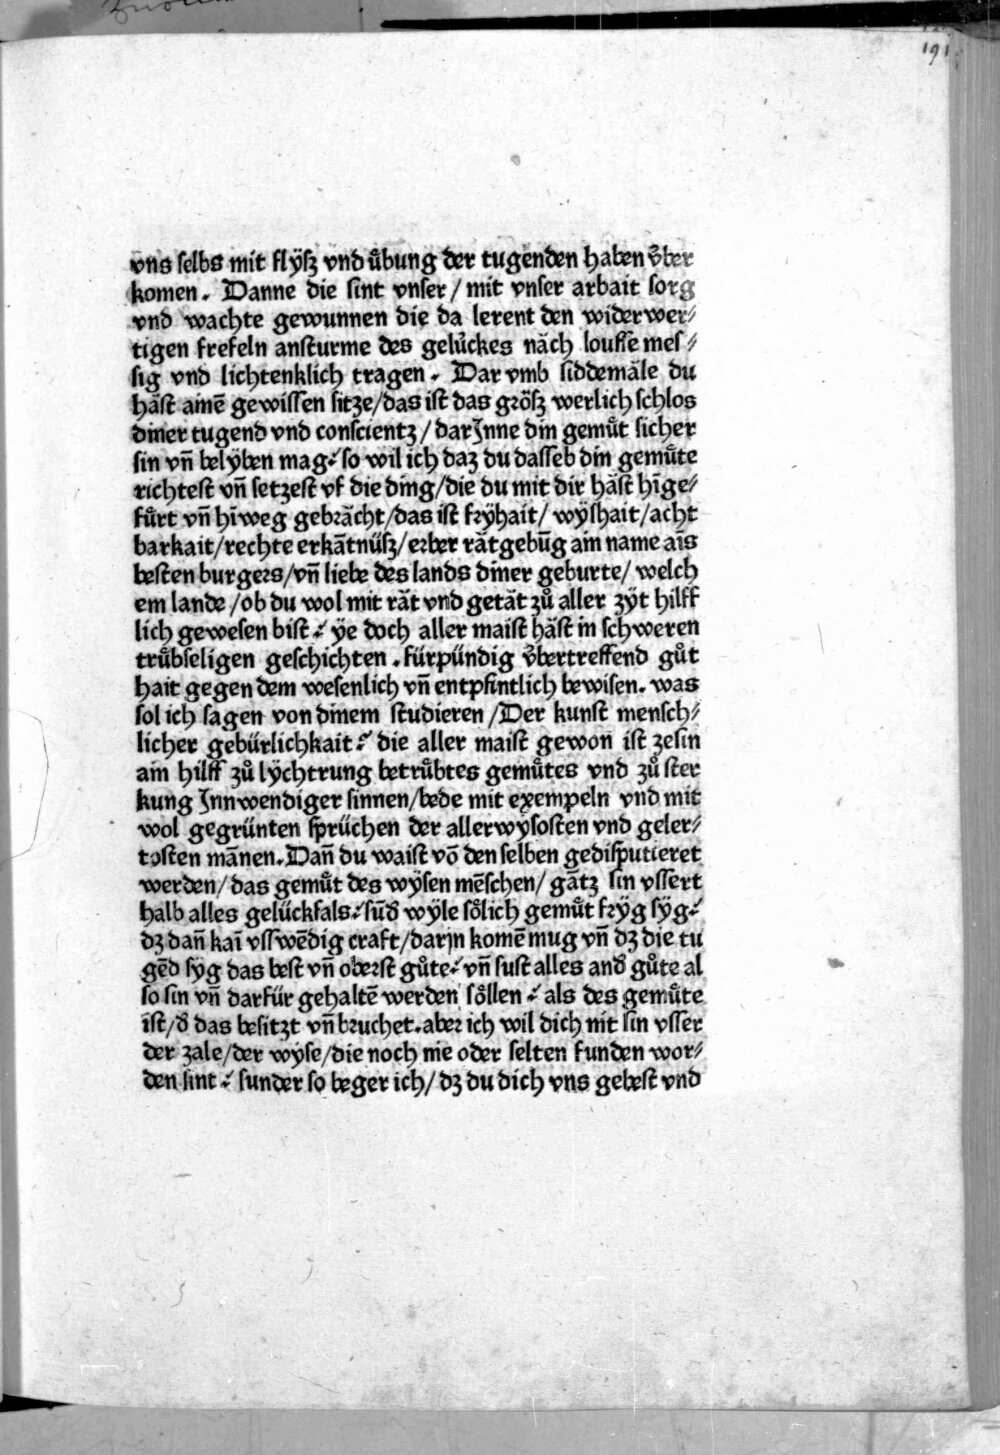 191
vns selbs mit flÿsz vnd uͤbung der tugenden haben v̈ber
komen. Danne die sint vnser / mit vnser arbait sorg
vnd wachte gewunnen die da lerent den widerwer⸗
tigen frefeln ansturme des gelückes näch louffe mes⸗
sig vnd lichtenklich tragen. Dar vmb siddemäle du
häst ainē gewissen sitze/das ist das grösz werlich schlos
diner tugend vnd conscientz/darJnne din gemuͤt sicher
sin vn̄ belÿben mag⸝ so wil ich daz du dasseb din gemuͤte
richtest vn̄ setzest vf die ding/die du mit dir häst hīge⸗
fuͤrt vn̄ hīweg gebrächt/das ist frÿhait/ wÿshait/acht
barkait/rechte erkātnüsz/erber rätgebūg ain name aīs
besten burgers/vn̄ liebe des lands diner geburte/ welch
em lande/ob du wol mit rät vnd getät zuͦ aller zÿt hilff
lich gewesen bist⸝ ÿe doch aller maist häst in schweren
truͤbseligen geschichten. fürpündig v̈bertreffend guͤt
hait gegen dem wesenlich vn̄ entpfintlich bewisen. was
sol ich sagen von dinem studieren/Der kunst mensch⸗
licher gebürlichkait⸝ die aller maist gewon ist zesin
ain hilff zuͦ lÿchtrung betruͤbtes gemuͤtes vnd zuͦ ster
kung Jnnwendiger sinnen/bede mit exempeln vnd mit
wol gegrünten sprüchen der allerwÿsosten vnd geler⸗
tosten mānen. Dan̄ du waist vō den selben gedisputieret
werden/das gemuͤt des wÿsen mēschen/ gātz sin vssert
halb alles gelückfals⸝ sūd wÿle soͤlich gemuͤt frÿg sÿg⸝
dz dan̄ kaī vsswēdig craft/darjn komē mug vn̄ dz die tu
gēd sÿg das best vn̄ oberst guͤte⸝ vn̄ sust alles and guͤte al
so sin vn̄ darfür gehaltē werden soͤllen⸝ als des gemuͤte
ist/d das besitzt vn̄ bruchet. aber ich wil dich nit sin vsser
der zale/der wÿse/die noch nie oder selten funden wor⸗
den sint⸝ sunder so beger ich/dz du dich vns gebest vnd